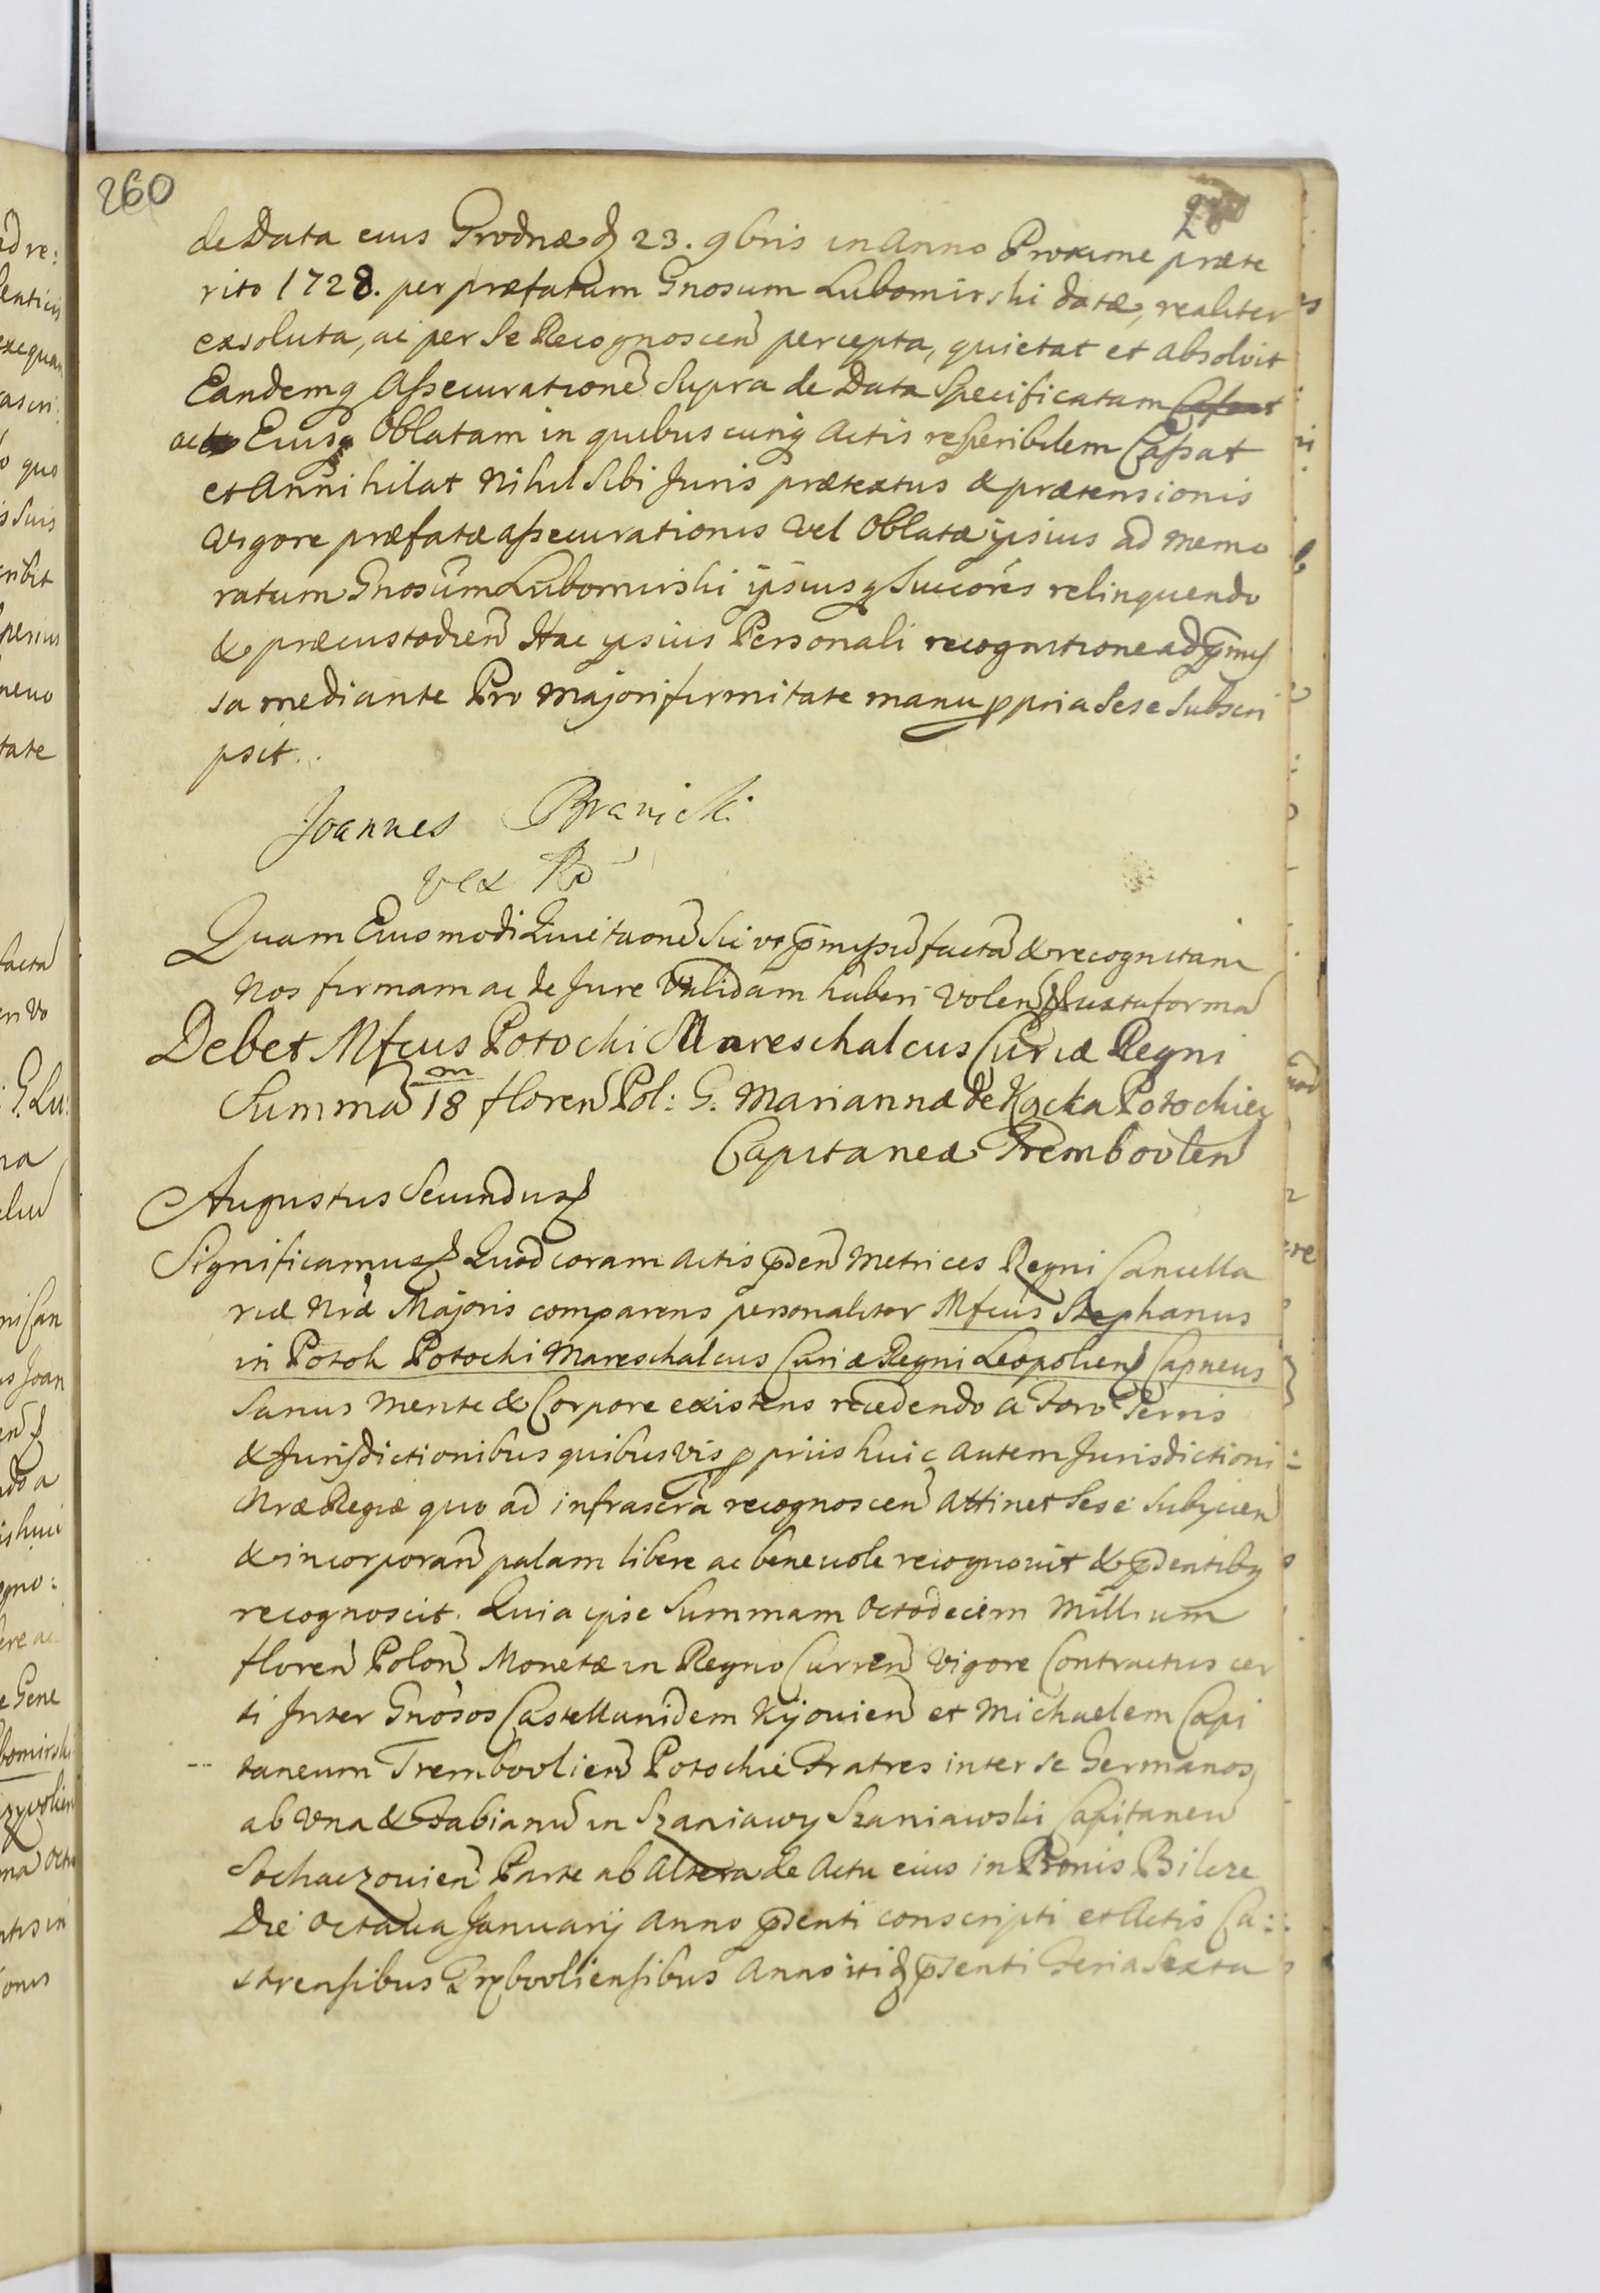 260
de Data eius Grodnæ d 23. 9bris in Anno Proxime præte
rito 1728. per præfatum Gnosum Lubomirski datæ, realiter
exsoluta, ac per Se Recognoscen percepta, quietat et absolvit
Eandemq Assecurationē Supra de Data Specificatam
ac Eiusq Oblatam in quibuscunq Actis reperibilem Cassat
et Annihilat Nihil Sibi Juris prætextus & prætensionis
Vigore præfatæ assecurationis Vel Oblatæ ipsius ad Memo
ratum Gnosum Lubomirski ipsiusq Succores relinquendo
& præcustodien Hac ipsius Personali recognitione ad pmis
sa mediante Pro Majori firmitate manu ppria Sese Subscri
psit.
Joannes Branicki
Quam Eiusmodi Quietaonē Sic vt pmissū factā & recognitam
Nos firmam ac de Jure Validam haberi Volen Juxta formā
Debet Mfcus Potocki Mareschalcus Curiæ Regni
Summā 18 m floren Pol: G. Mariannæ de Kącka Potockiey
Capitaneæ Trembovlen
Augustus Secundus
Significamus Quod coram Actis pden Metrices Regni Cancella
riæ Nræ Majoris comparens personaliter Mfcus Stephanus
in Potok Potocki Mareschalcus Curiæ Regni Leopolien Capneus
Sanus Mente & Corpore existens recedendo a Foro Terris
& Jurisdictionibus quibusvis ppriis huic autem Jurisdictioni
Nræ Regiæ quo ad infrascra recognoscen Attinet Sese Subycien
& incorporan palam libere ac benevole recognovit & pdentibq
recognoscit. Quia ipse Summam Octodecim Millium
floren Polon Monetæ in Regno Curren Vigore Contractus cer
ti Inter Gnosos Castellanidem Kijovien et Michaelem Capi
taneum Trembovlien Potockie Fratres inter se Germanos
ab Vna & Fabianū in Szaniawy Szaniawski Capitaneū
Sochaczovien Parte ab Altera de Actu eius in Bonis Bilcze
Die Octava January Anno pdenti conscripti et Actis Ca:
strensibus Trębovliensibus Anno itidq psenti Feria Sexta